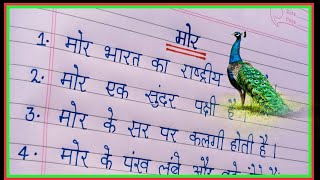 मोर
1. मोर भारत का राष्ट्रीय
2. मोर एक सुंदर पक्षी है।
3. मोर के सर पर कलगी होती है।
4. मोर के पंख लंबे और